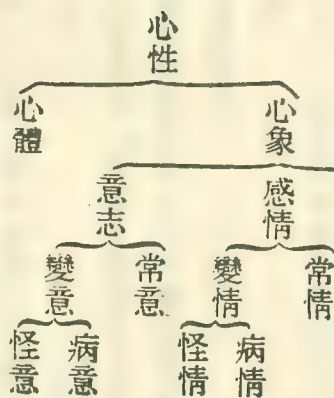 心性
心象
心體
感情
意志
常情
變情
常意
變意
病情
怪情
病意
怪意